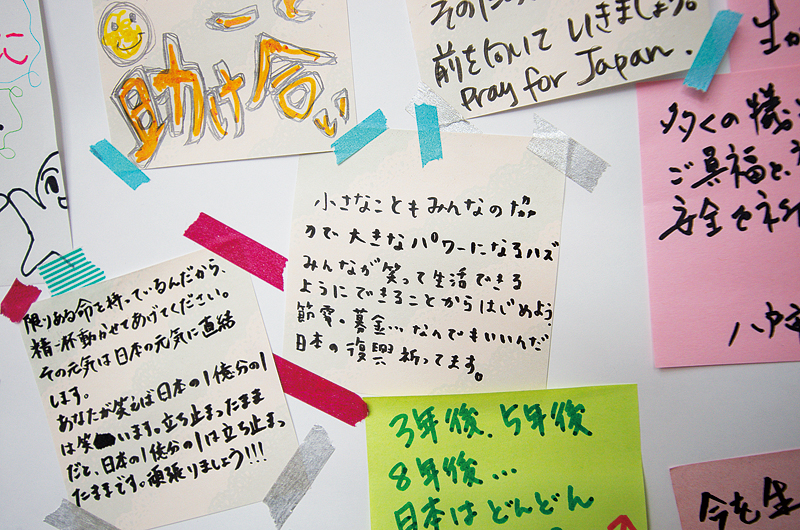 助け合い
そのた
前を向いていきましょう。
pray for Japan.
多くの犠
ご冥福と、
安全を
八戸
小さなこともみんなの協
力で大きなパワーになるハズ
みんなが笑って生活できる
ようにできることからはじめよう。
節電・募金…なんでもいいんだ
日本の復興祈ってます。
限りある命を持っているんだから、
精一杯動かせてあげてください。
その元気は日本の元気に直結
します。
あなたが笑えば日本の1億分の1
は笑います。立ち止まったまま
だと、日本の1億分の1は立ち止まっ
たままです。頑張りましょう!!!
3年後、5年後
8年後…
日本はどんどん
今を生